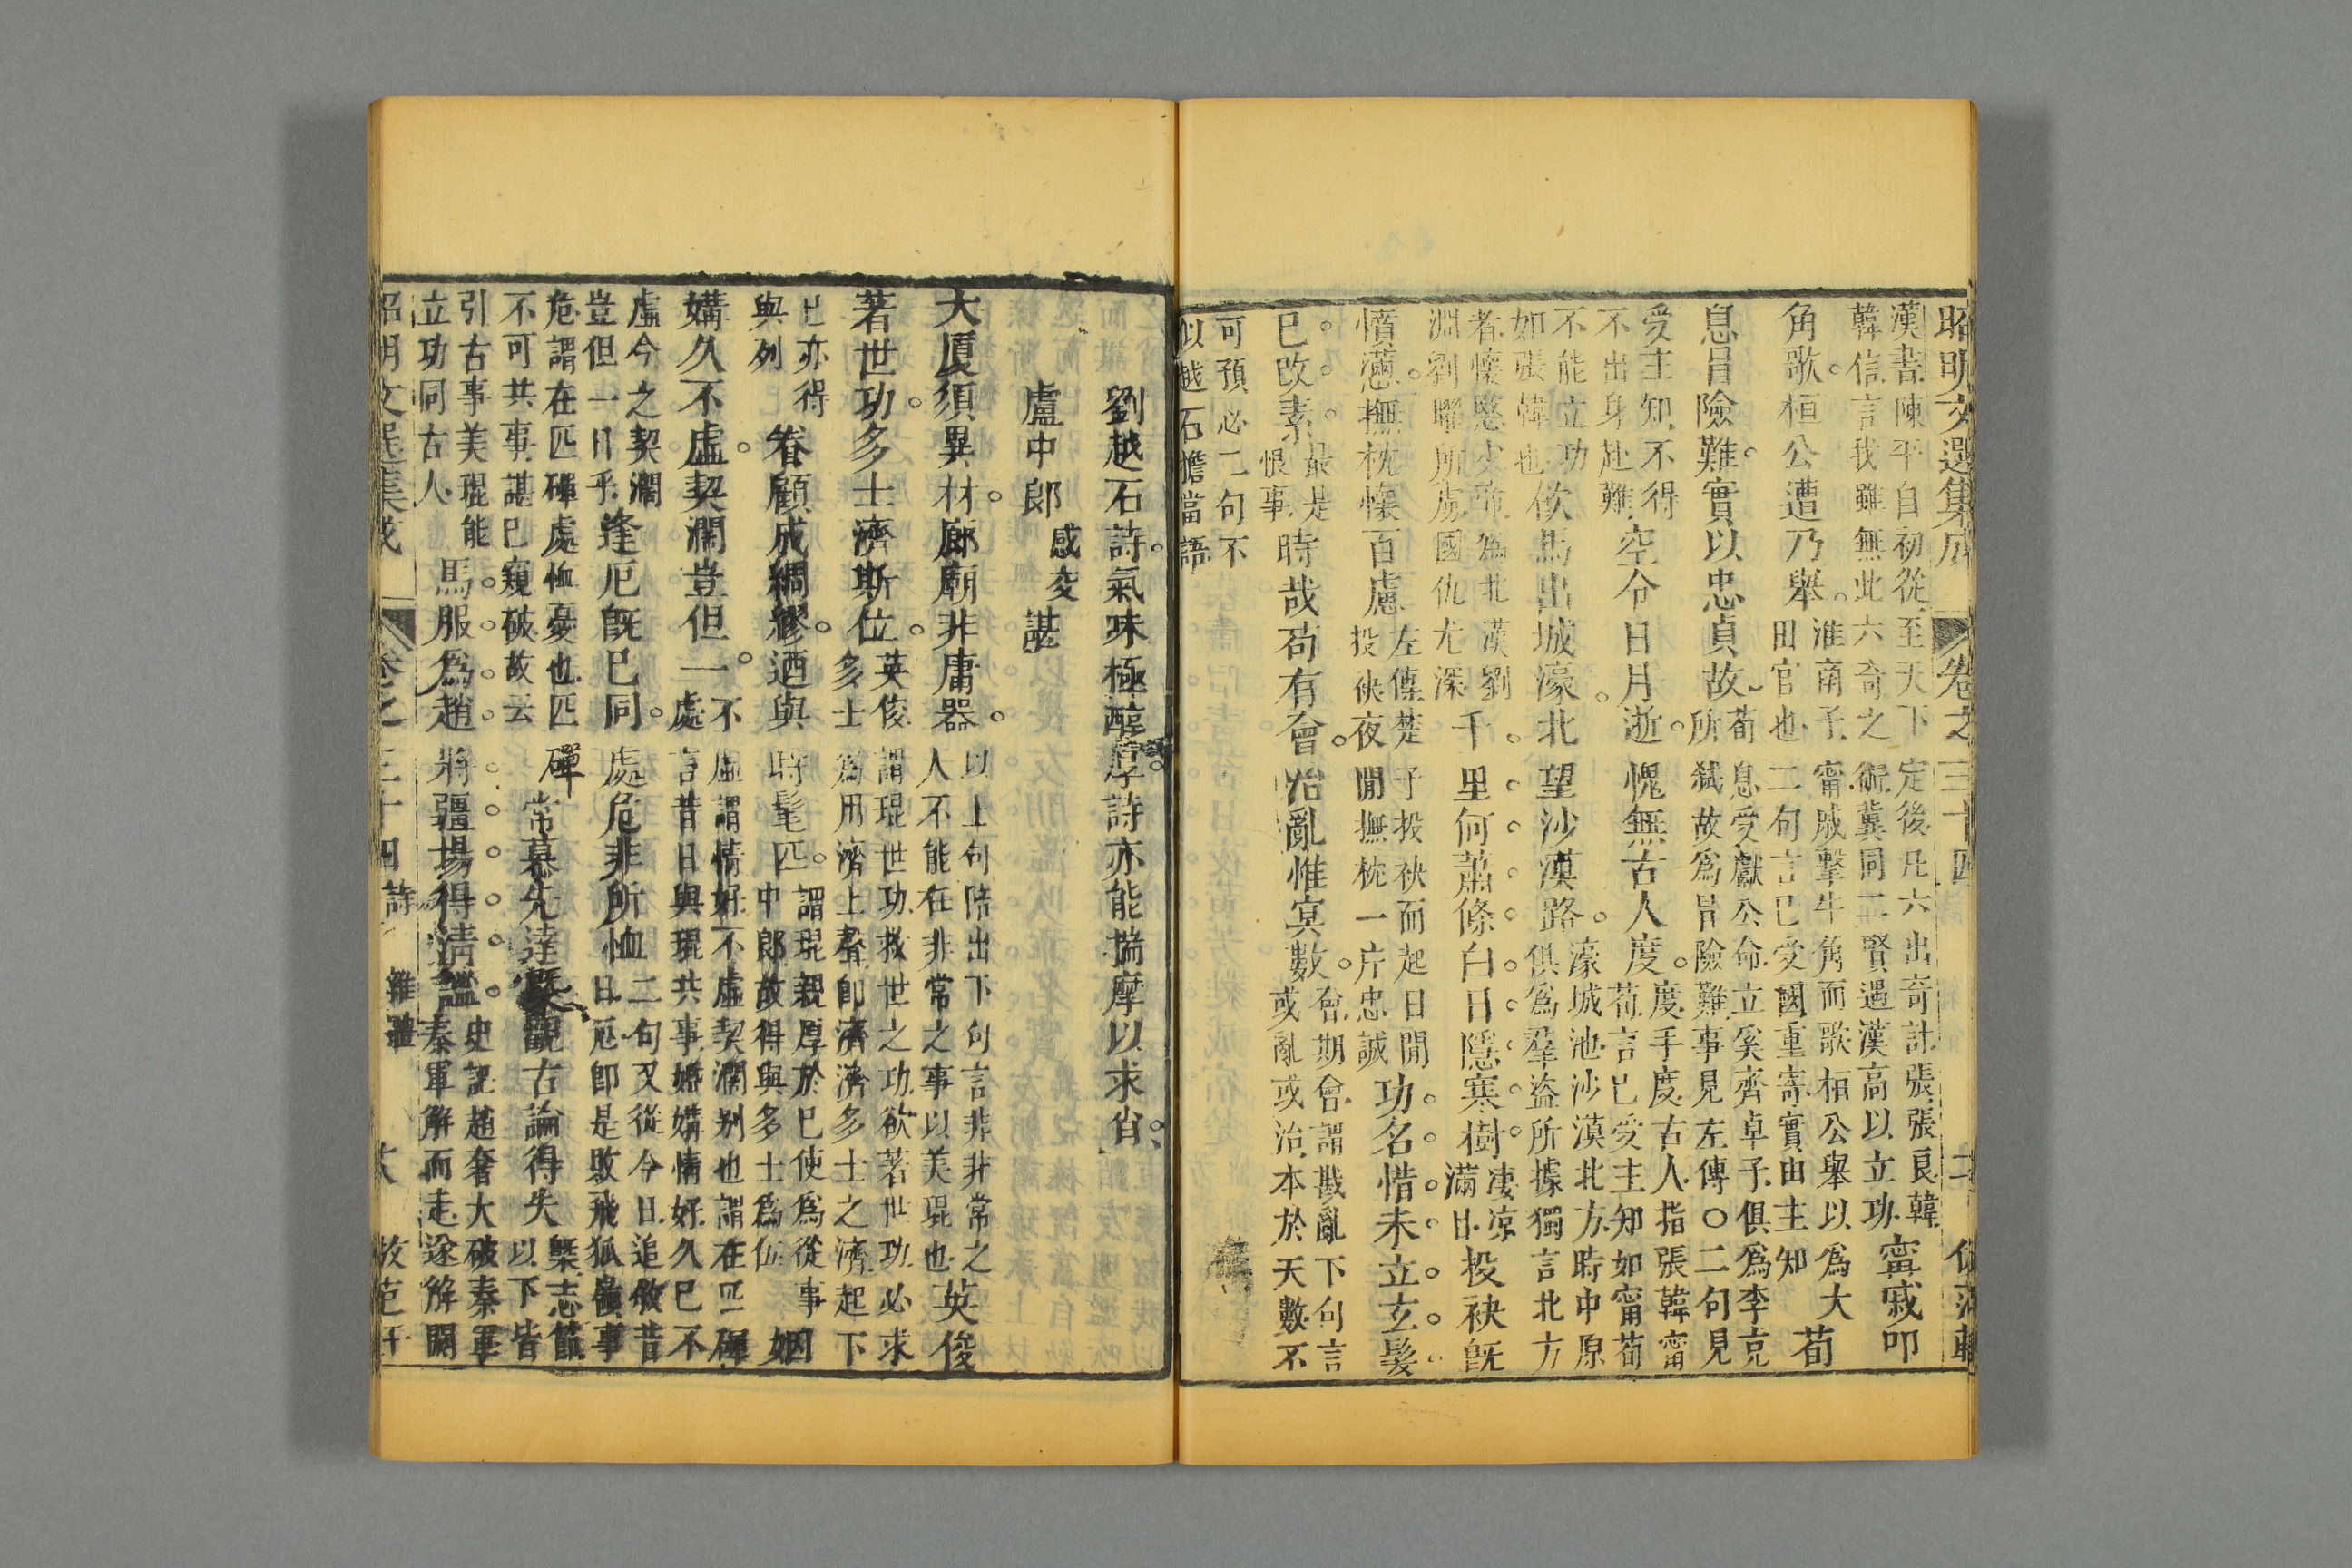 昭明文選集成 卷之三十四
漢書陳平自初從至天下定後凡六出奇計張張良韓
韓信言我雖無此六奇之術冀同二賢遇漢高以立功
甯戚叩
角歌桓公遭乃舉
淮南子甯戚擊牛角而歌桓公舉以為大
田官也二句言已受國重寄實由主知
荀
息冒險難實以忠貞故
荀息受獻公命立奚齊卓子俱為李克
所弒故為冒險難事見左傳○二句見
受主知不得
不出身赴難
空令日月逝愧無古人度
度手度古人指張韓甯荀
荀言已受主知如甯荀
不能立功
如張韓也
飲馬出城濠北望沙漠路
濠城池沙漠北方時中原
俱為羣盜所據獨言北方
者懷愍為北漢劉
淵劉曜所虜國仇尤深
千里何蕭條白日隱寒樹
淒涼
滿目
投袂既
憤懣撫枕懷百慮
左傳楚子投袂而起日間
投袂夜間撫枕一片忠誠
功名惜未立玄髮
已改素
最是
恨事
時哉苟有會治亂惟冥數
會期會謂戡亂下句言
或亂或治本於天數不
可預必二句不
似越石擔當語
劉越石詩氣味極醇厚詩亦能揣摩以求省
盧中郎感交 諶
大厦須異材廊廟非庸器
以上句陪出下句言非非常之
人不能在非常之事以美琨也
英俊
著世功多士濟斯位
英俊謂琨世功救世之功欲著世功必求
多士為用濟上聲卽濟濟多士之濟起下
已亦得
與列
眷顧成綢繆迺與時髦匹
謂琨親厚於已使為從事
中郎故得與多士為伍
姻
媾久不虛契濶豈但一
不虛謂情好不虛契濶別也謂在匹磾
處言昔日與琨共事婚媾情好久已不
虛今之契濶
豈但一日乎
逢厄既已同處危非所恤
二句又從今日追敘昔
日厄卽是敗飛狐嶺事
危謂在匹磾處恤憂也匹磾
不可共事諶已窺破故云
常慕先達槩觀古論得失
槩志節
以下皆
引古事美琨能
立功同古人
馬服為趙將疆場得清謐
史記趙奢大破秦軍
秦軍解而走遂解閼
昭明文選集成 卷之三十四 詩 雜擬